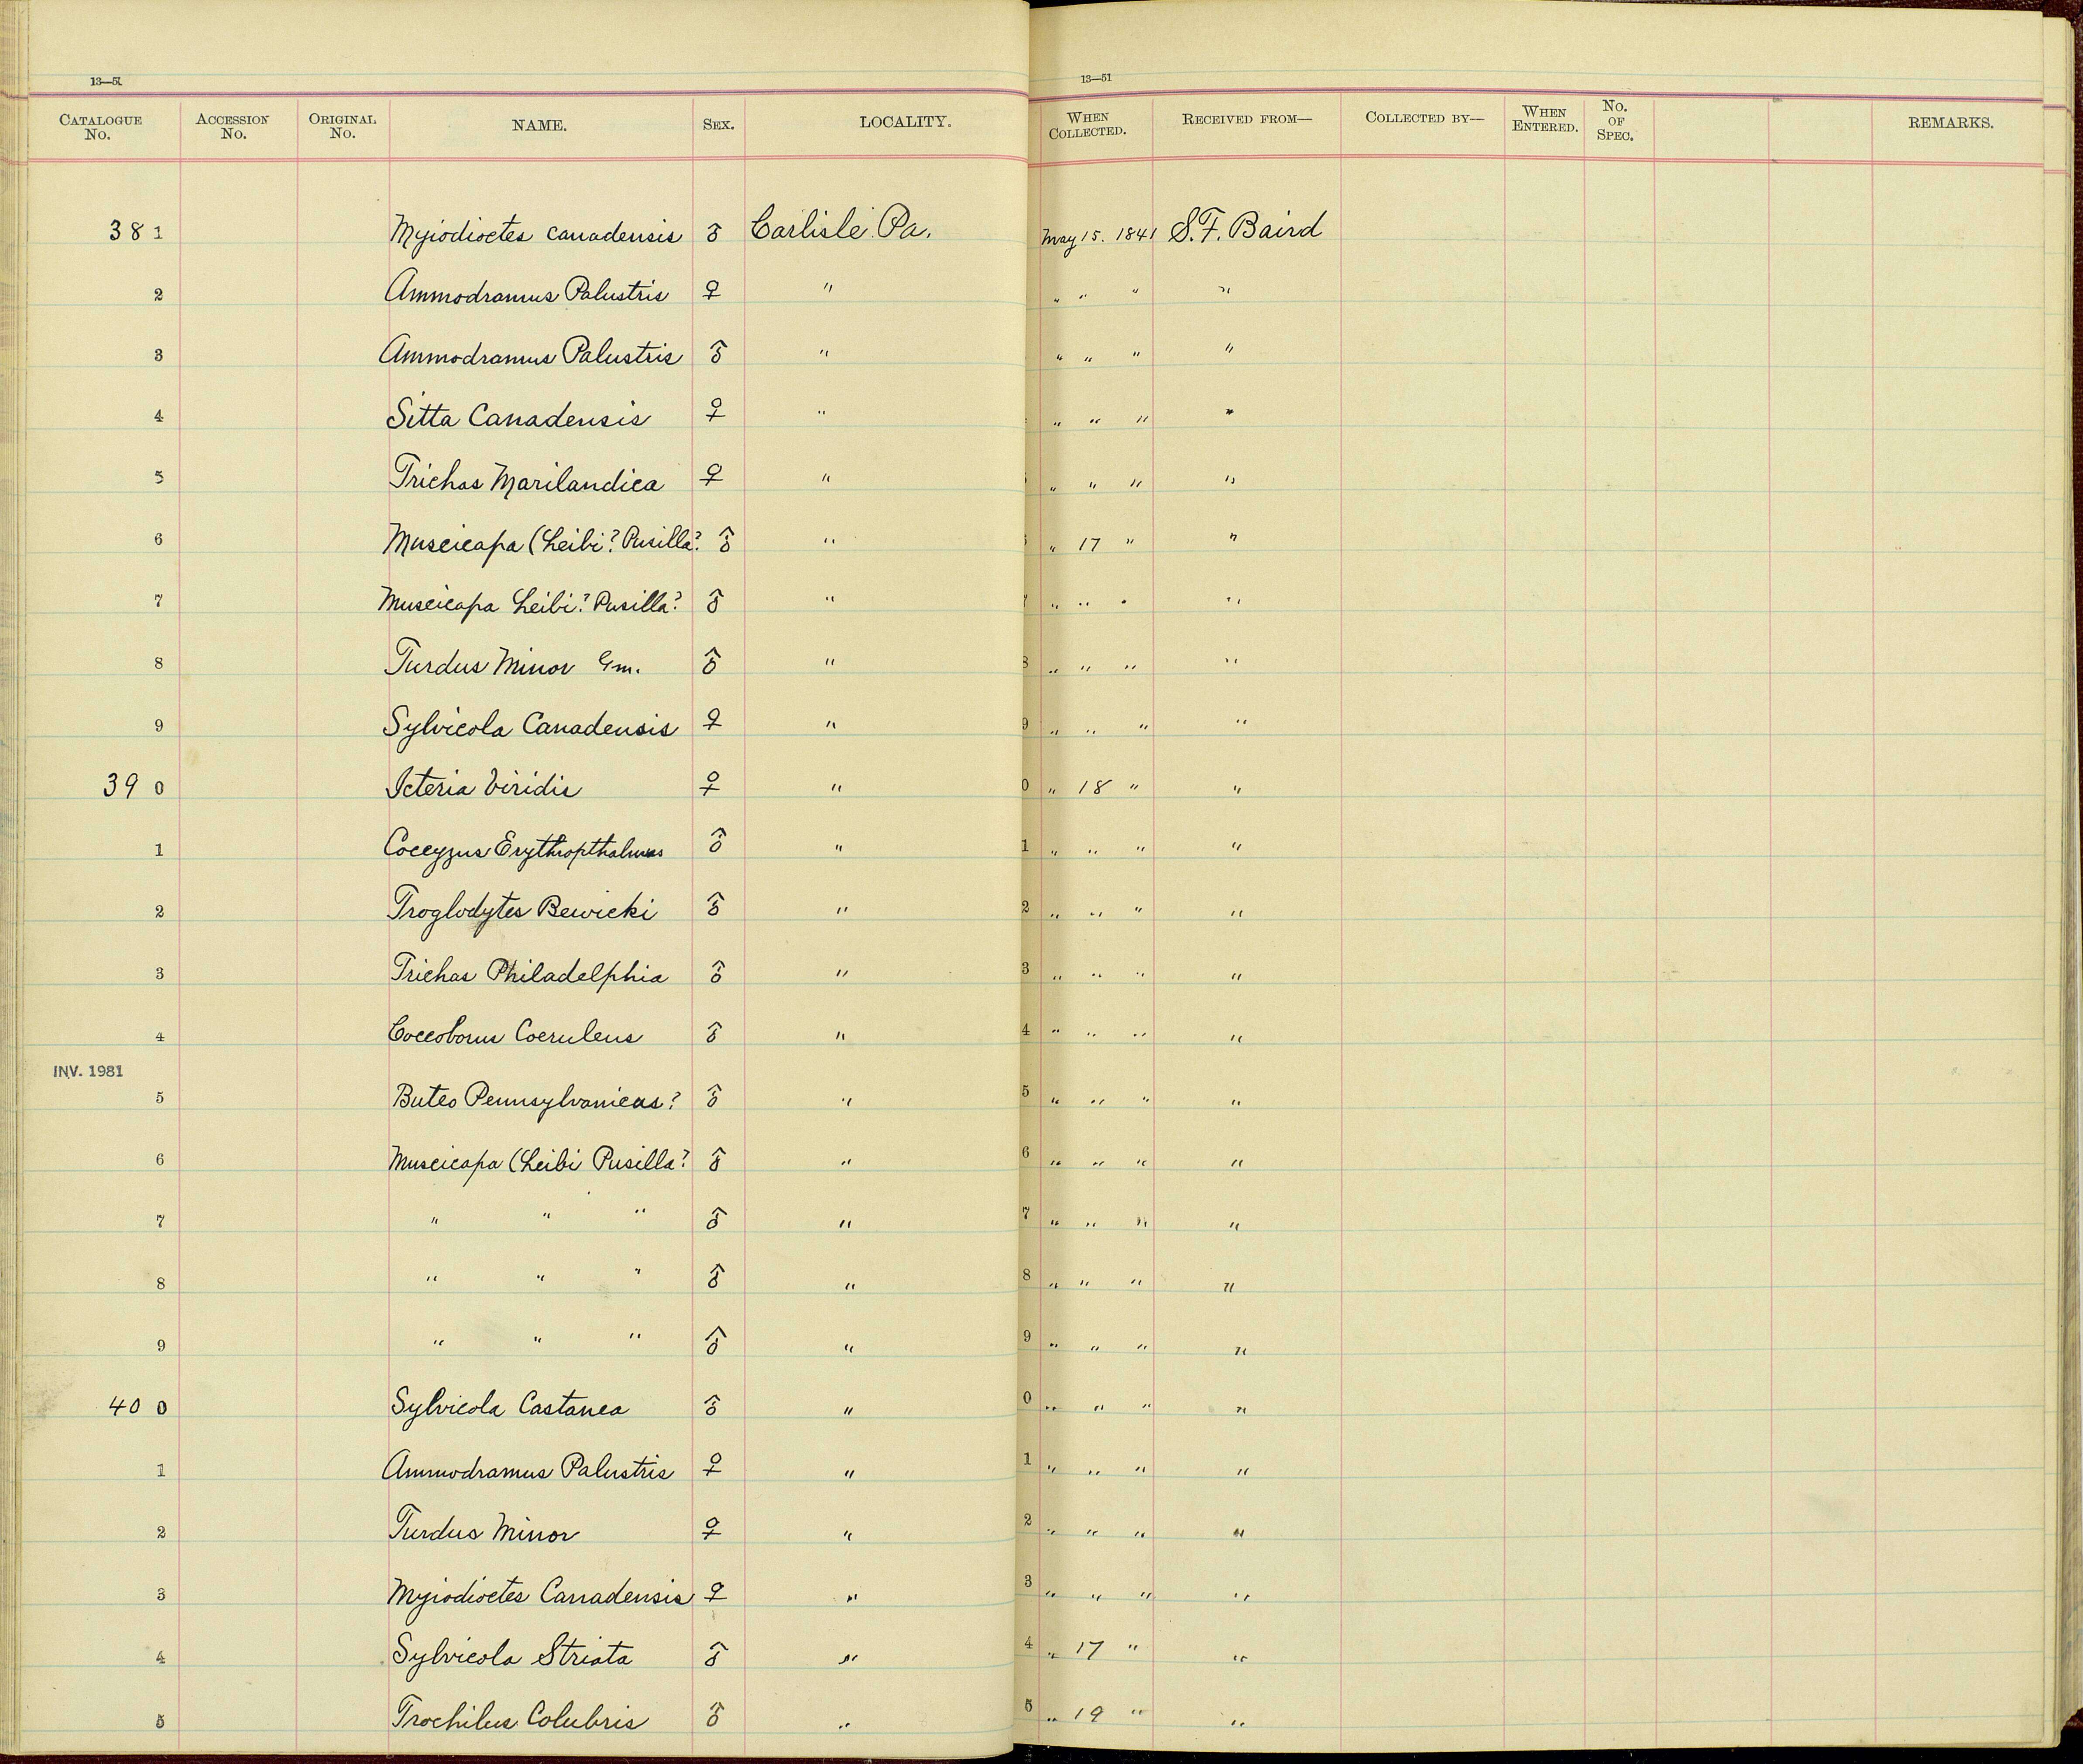 13—51 13—51
CATALOGUE No. ACCESSION No. ORIGINAL No. NAME. SEX. LOCALITY. WHEN COLLECTED. RECEIVED FROM— COLLECTED BY— WHEN ENTERED. No. OF SPEC. REMARKS.
381 Myiodioctes canadensis ♂ Carlisle Pa. May 15. 1841 S. F. Baird
2 Ammodramus Palustris ♀ " " " " "
3 Ammodramus Palustris ♂ " " " " "
4 Sitta Canadensis ♀ " " " " "
5 Trichas Marilandica ♀ " " " " "
6 Muscicapa (Leibi? Pusilla? ♂ " " 17 " "
7 Muscicapa Leibi? Pusilla? ♂ " 7 " " " "
8 Turdus Minor Gm. ♂ " 8 " " " "
9 Sylvicola Canadensis ♀ " 9 " " " "
390 Icteria Viridis ♀ " 0 " 18 " "
1 Coccyzus Erythropthalmus ♂ " 1 " " " "
2 Troglodytes Bewicki ♂ " 2 " " " "
3 Trichas Philadelphia ♂ " 3 " " " "
4 Coccoborus Coeruleus ♂ " 4 " " " "
INV. 1981
5 Buteo Pennsylvanicus? ♂ " 5 " " " "
6 Muscicapa (Leibi Pusilla? ♂ " 6 " " " "
7 " " " ♂ " 7 " " " "
8 " " " ♂ " 8 " " " "
9 " " " ♂ " 9 " " " "
400 Sylvicola Castanea ♂ " 0 " " " "
1 Ammodramus Palustris ♀ " 1 " " " "
2 Turdus Minor ♀ " 2 " " " "
3 Myiodioctes Canadensis ♀ " 3 " " " "
4 Sylvicola Striata ♂ " 4 " 17 " "
5 Trochilus Colubris ♂ " 5 " 19 " "